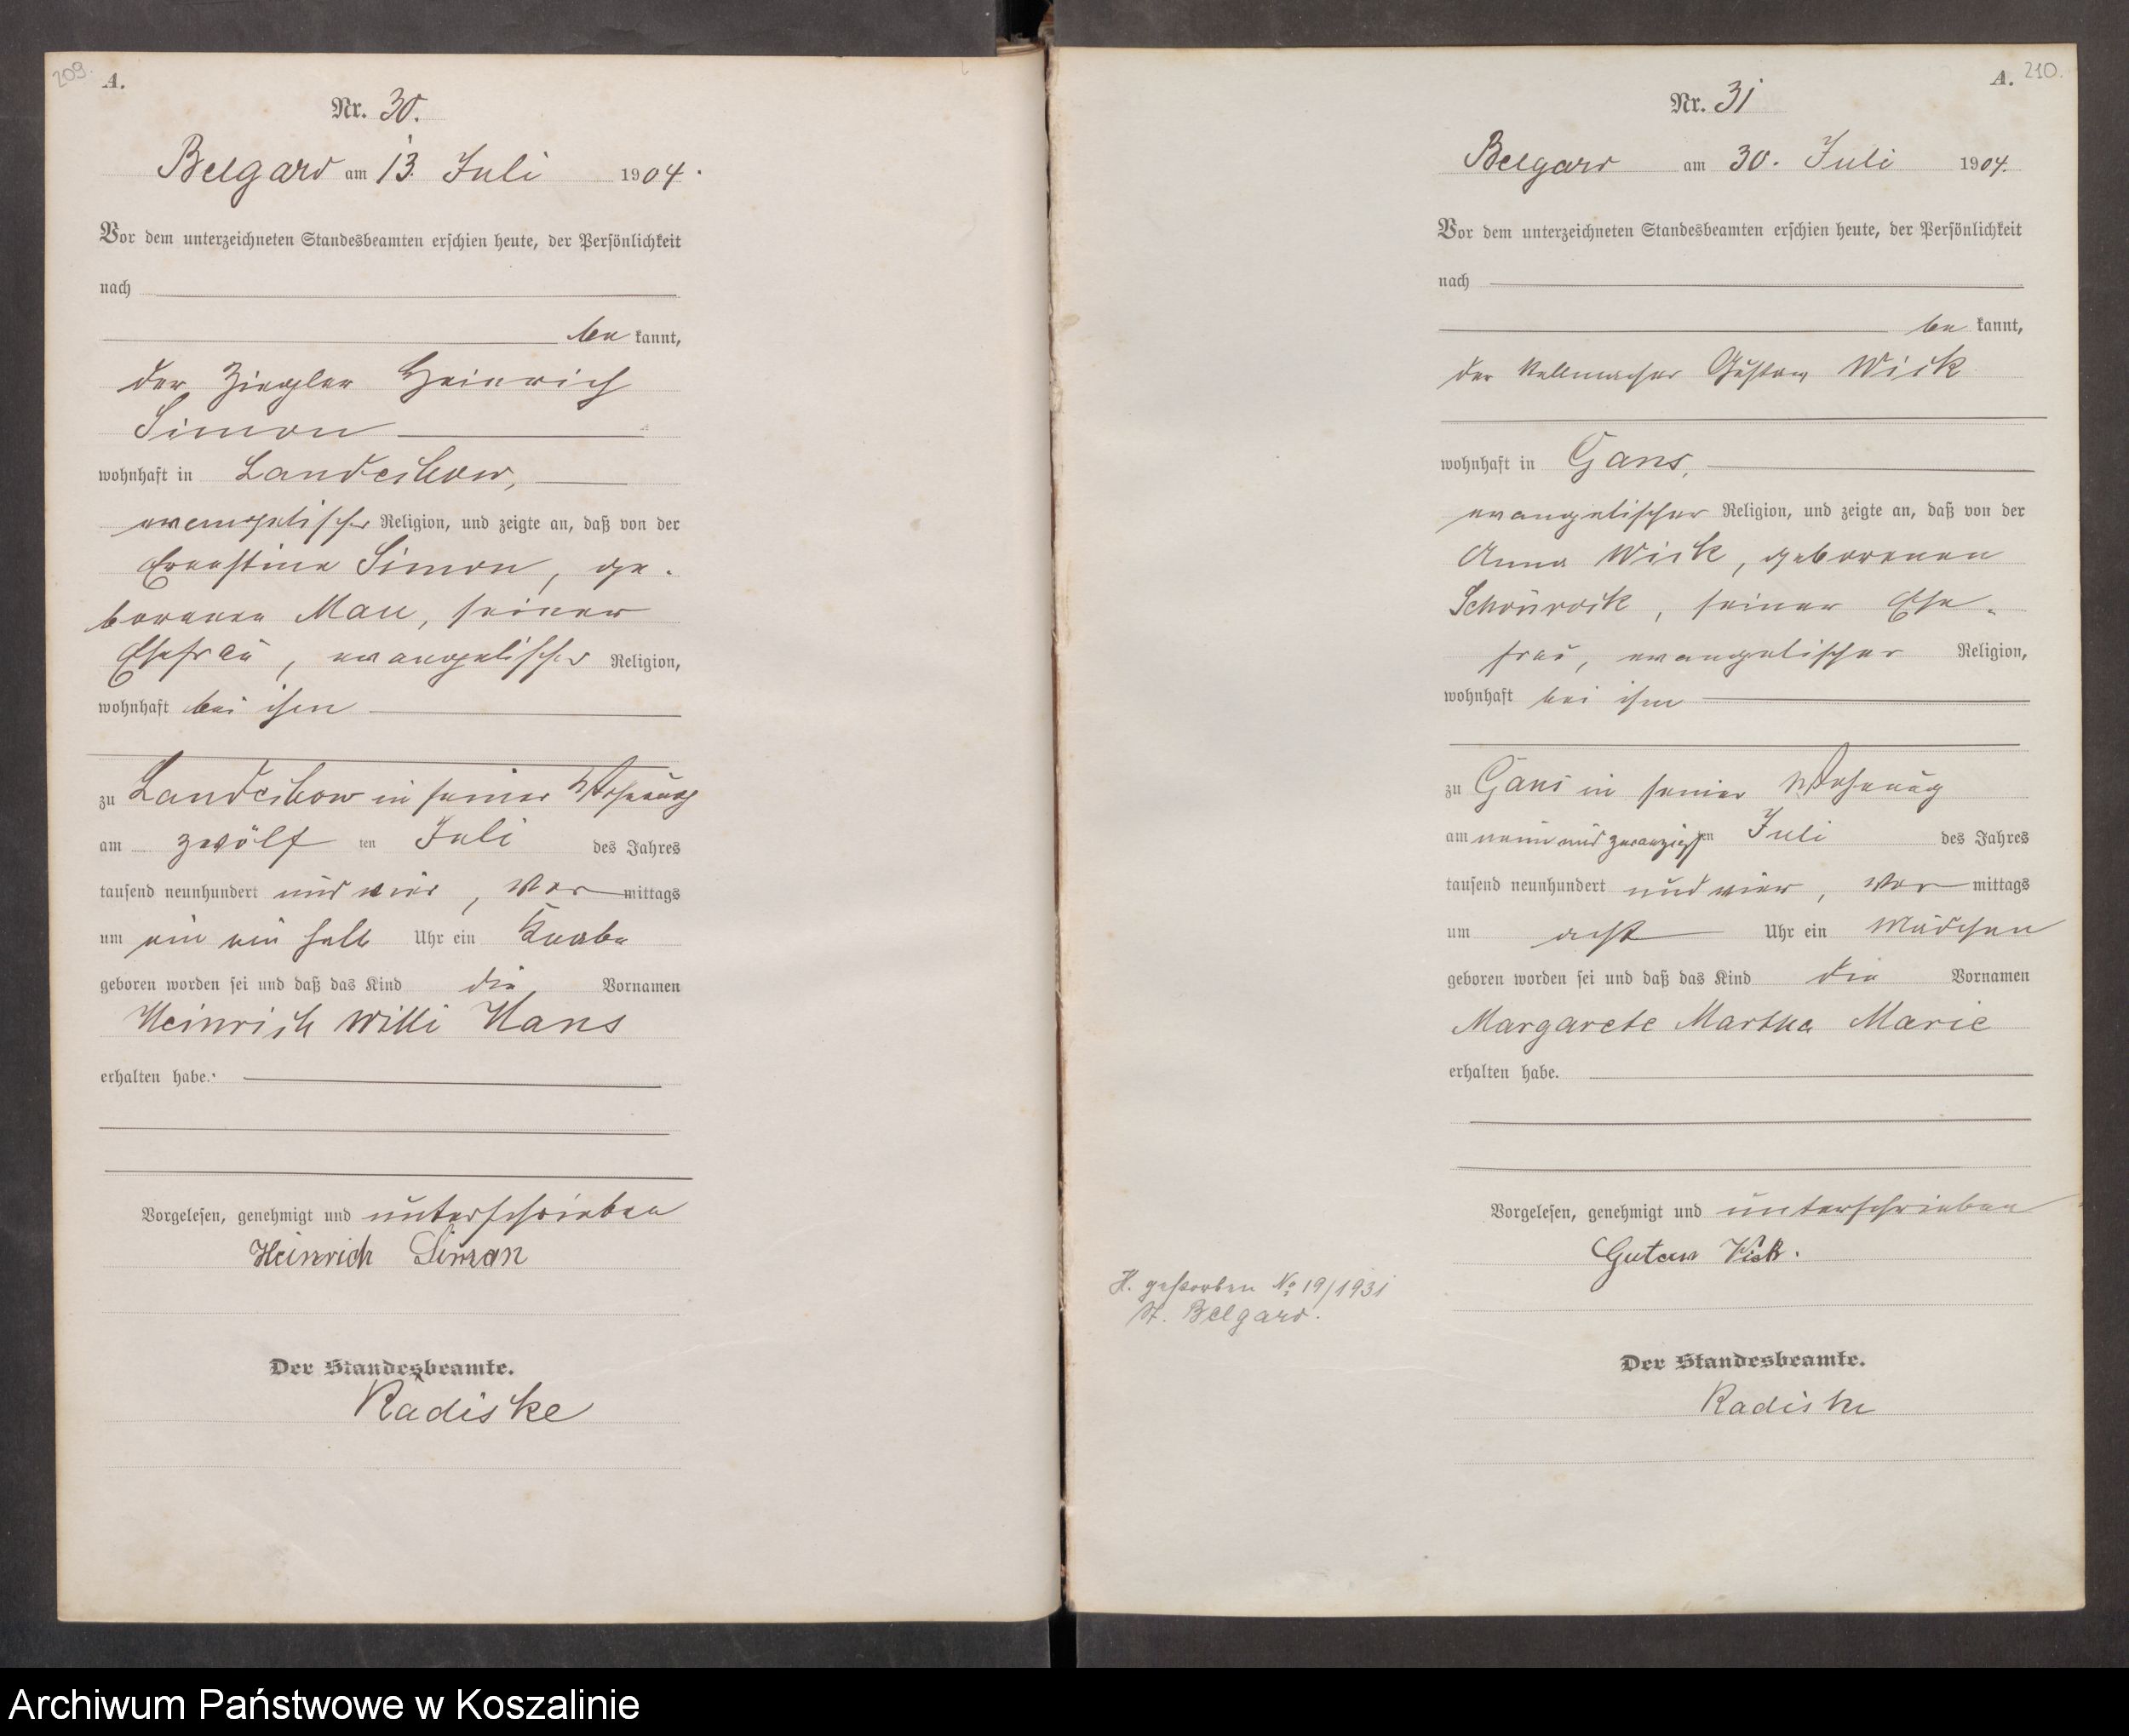 209.
A.
Nr. 30.
Belgard am 13. Juli 1904.
Vor dem unterzeichneten Standesbeamten erschien heute, der Persönlichkeit
nach
be kannt,
der Ziegler Heinrich
Simon
wohnhaft in Landechow,
evangelischer Religion, und zeigte an, daß von der
Ernestine Simon, ge-
borenen Mau, seiner
Ehefrau, evangelischer Religion,
wohnhaft bei ihm
zu Landechow in seiner Wohnung
am zwölf ten Juli des Jahres
tausend neunhundert und vier, Vor mittags
um ein ein halb Uhr ein Knabe
geboren worden sei und daß das Kind die Vornamen
Heinrich Willi Hans
erhalten habe.
Vorgelesen, genehmigt und unterschrieben
Heinrich Siman
Der Standesbeamte.
Radiske
A. 210.
Nr. 31
Belgard am 30. Juli 1904.
Vor dem unterzeichneten Standesbeamten erschien heute, der Persönlichkeit
nach
be kannt,
der Stellmacher Gustav Wick
wohnhaft in Gans,
evangelischer Religion, und zeigte an, daß von der
Anna Wick, geborenen
Schönrock, seiner Ehe-
frau, evangelischer Religion,
wohnhaft bei ihm
zu Gans in seiner Wohnung
am neun und zwanzigsten Juli des Jahres
tausend neunhundert und vier, Vor mittags
um acht Uhr ein Mädchen
geboren worden sei und daß das Kind die Vornamen
Margarete Martha Marie
erhalten habe.
Vorgelesen, genehmigt und unterschrieben
Gustav Wick.
H. gestorben No 19/1931
St. Belgard.
Der Standesbeamte.
Radiske
Archiwum Państwowe w Koszalinie